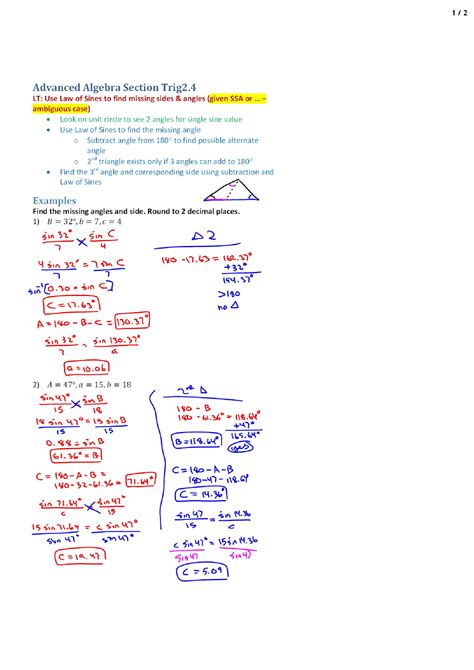 1 / 2
Advanced Algebra Section Trig2.4
LT: Use Law of Sines to find missing sides & angles (given SSA or … –
ambiguous case)
• Look on unit circle to see 2 angles for single sine value
• Use Law of Sines to find the missing angle
o Subtract angle from 180° to find possible alternate
angle
o 2nd triangle exists only if 3 angles can add to 180°
• Find the 3rd angle and corresponding side using subtraction and
Law of Sines
Examples
Find the missing angles and side. Round to 2 decimal places.
1) B = 32°, b = 7, c = 4
sin 32° / 7 = sin C / 4
4 sin 32° / 7 = 7 sin C / 7
sin⁻¹[0.30 = sin C]
C = 17.63°
A = 180 - B - C = 130.37°
sin 32° / 7 = sin 130.37° / a
a = 10.06
Δ 2
180 - 17.63 = 162.37°
+32°
194.37°
>180
no Δ
2) A = 47°, a = 15, b = 18
sin 47° / 15 = sin B / 18
18 sin 47° / 15 = 15 sin B / 15
0.88 = sin B
61.36° = B
C = 180 - A - B =
180 - 32 - 61.36 = 71.64°
sin 71.64° / c = sin 47° / 15
15 sin 71.64 / sin 47° = c sin 47° / sin 47°
C = 19.47
2nd Δ
180 - B
180 - 61.36° = 118.64°
+47°
165.64°
yes
B = 118.64°
C = 180 - A - B
180 - 47 - 118.64
C = 14.36°
sin 47 / 15 = sin 14.36 / c
c sin 47° / sin 47 = 15 sin 14.36 / sin 47
C = 5.09